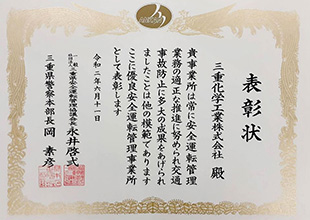 表彰状
三重化学工業株式会社 殿
貴事業所は常に安全運転管理
業務の適正な推進に努められ交通
事故防止に多大の成果をあげられ
ましたことは他の模範であります
ここに優良安全運転管理事業所
として表彰します
令和二年六月十一日
一般社団法人
三重県安全運転管理協議会会長 永井啓弍
三重県警察本部長 岡 素彦